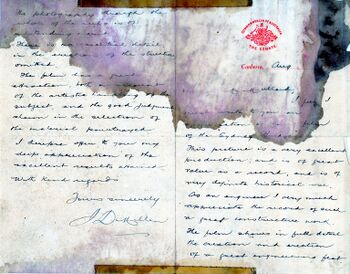 The photography through the
whole of the film is of
There is no essential detail
in the erection of the structure
omitted
The film has a great
attraction both
of the interested
subject, and the good judgment
shown in the selection
of the material
I therefore offer to you my
deep appreciation of the
excellent results attained
With kind regards
Yours sincerely
J. D. Millen
COMMONWEALTH OF AUSTRALIA
THE SENATE
Canberra, Aug
you
of the Sydney
This picture is a very excellent
production, and is of great
value as a record, and is of
very definite historical use.
As an engineer I very much
appreciate the value of such
a great constructive work
The film shows in full detail
the creation and erection
of a great engineering feat